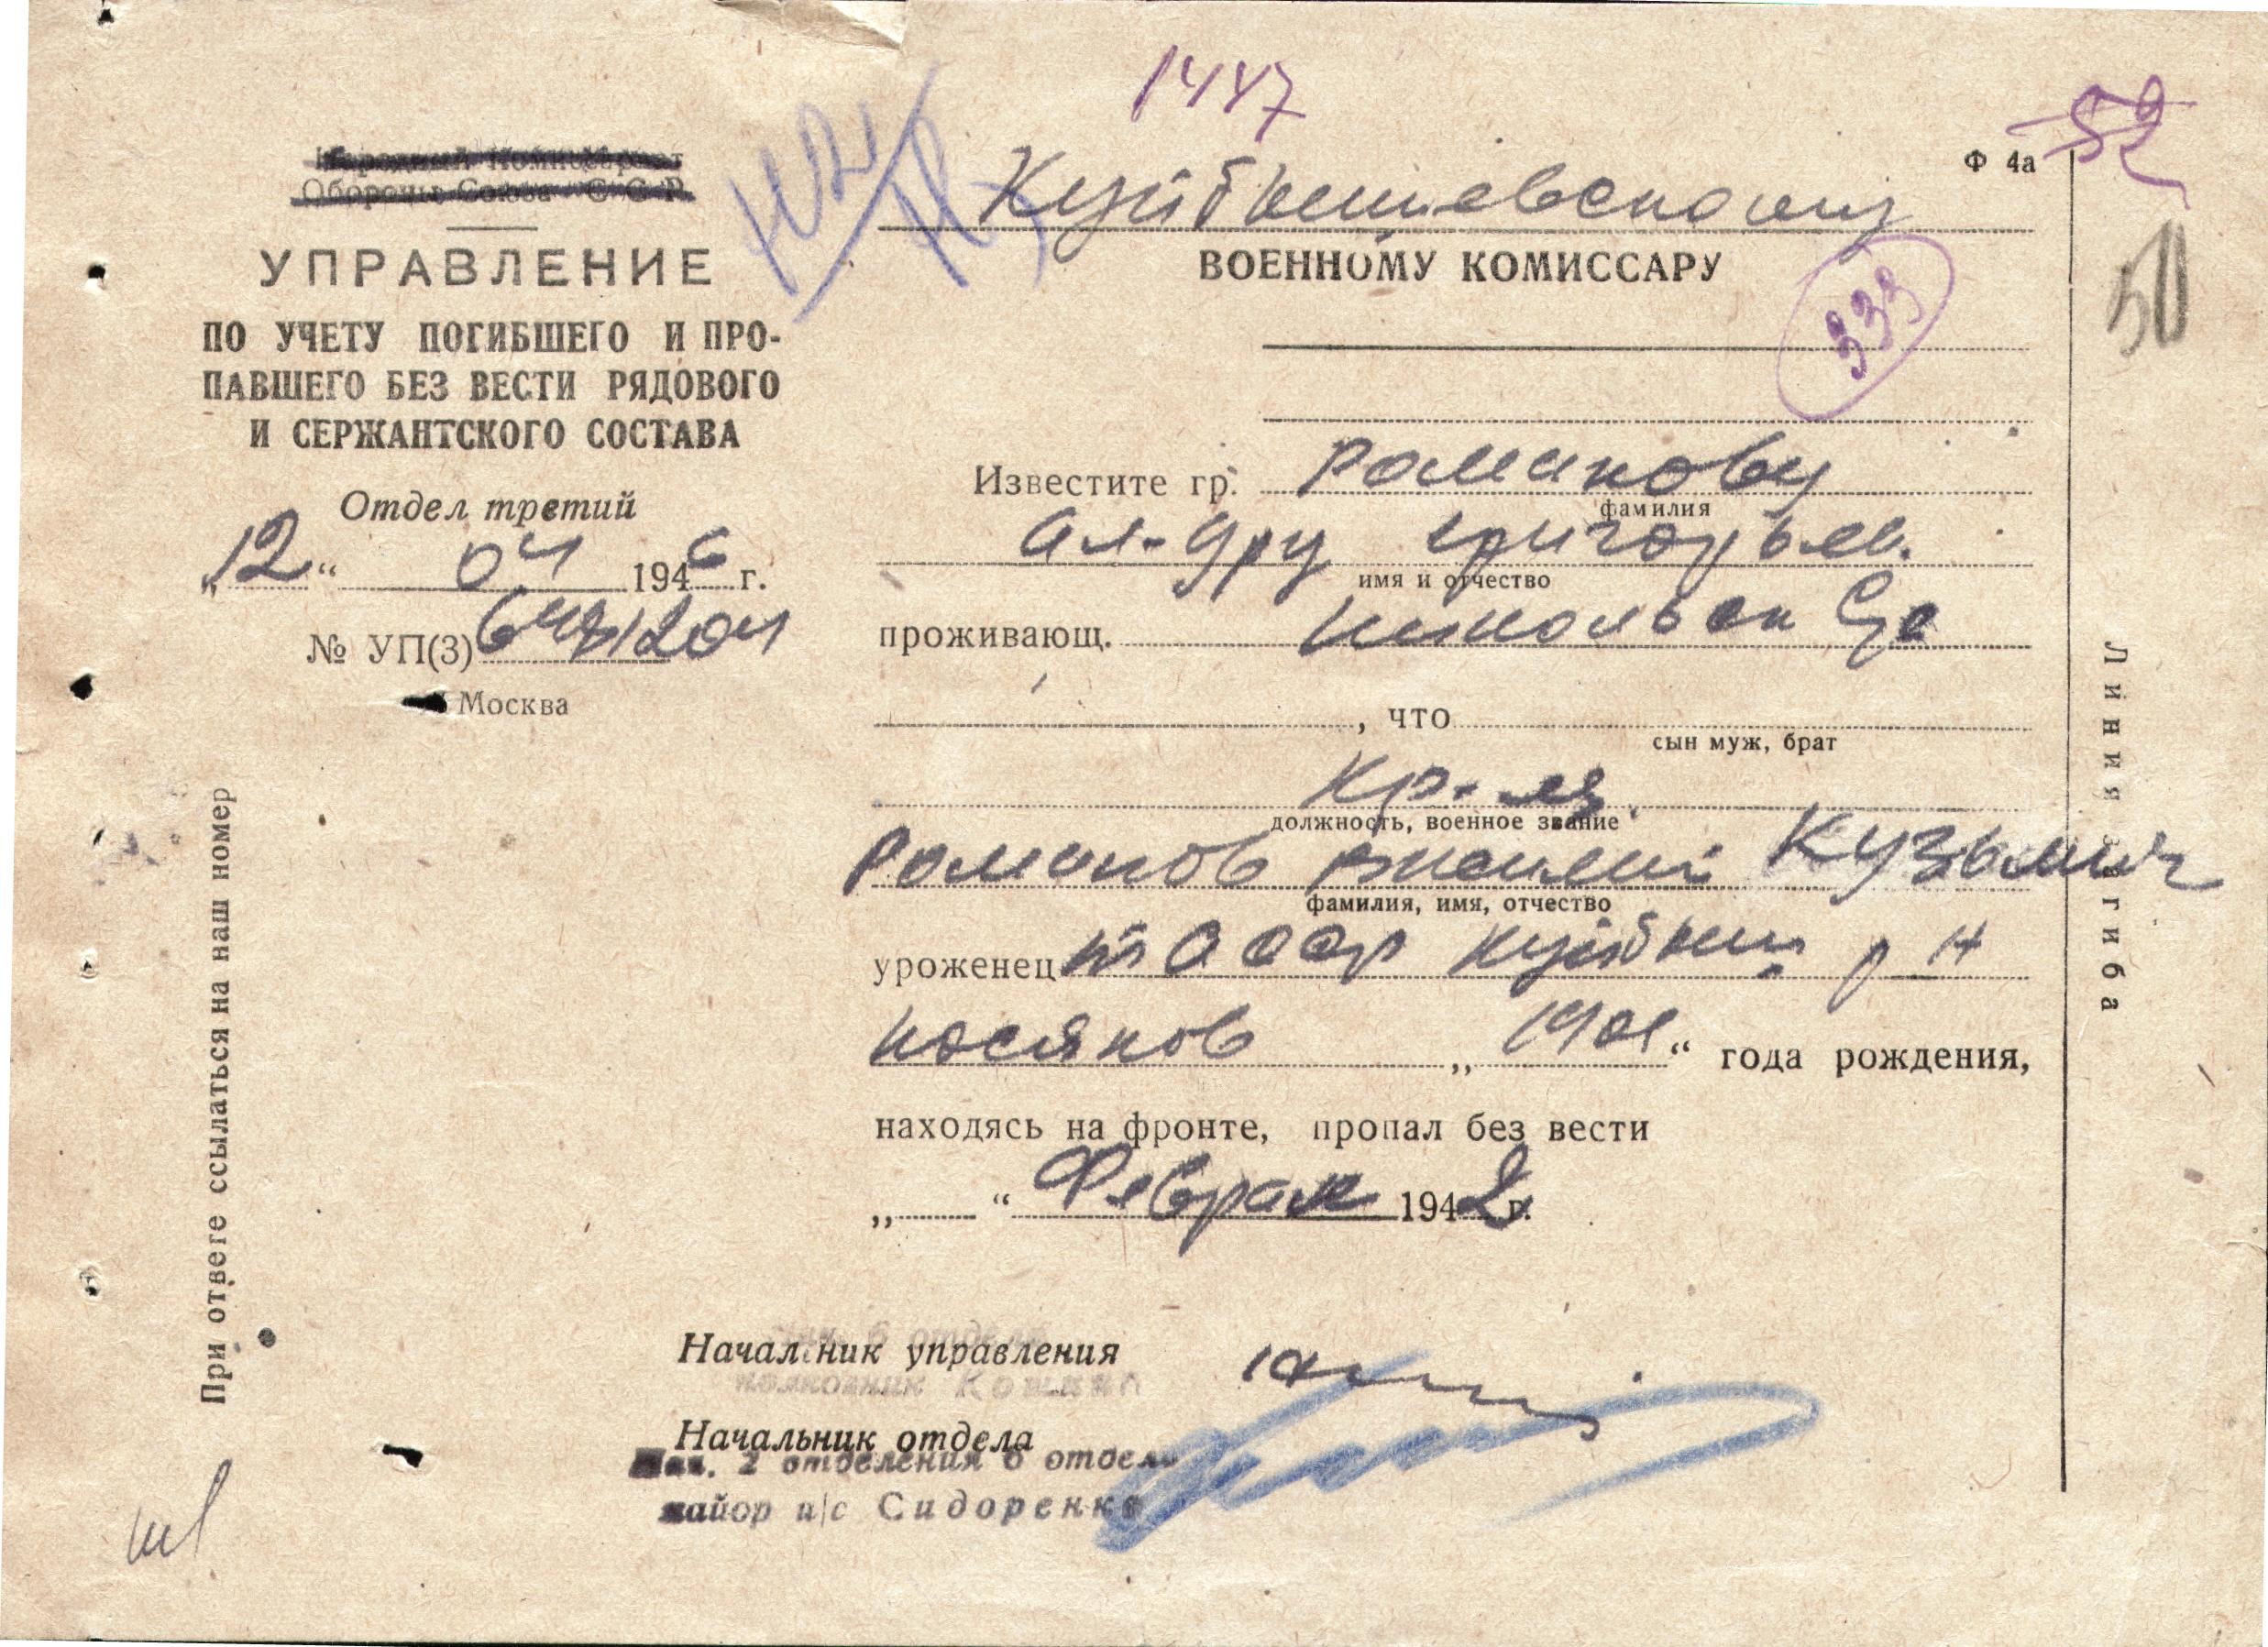 1447
52
Ф 4а
50
Народный Комиссариат
Обороны Союза ССР
УПРАВЛЕНИЕ
ПО УЧЕТУ ПОГИБШЕГО И ПРО-
ПАВШЕГО БЕЗ ВЕСТИ РЯДОВОГО
И СЕРЖАНТСКОГО СОСТАВА
Отдел третий
„12“ 04 1946 г.
№ УП(З)
Москва
При ответе ссылаться на наш номер
Куйбышевскому
ВОЕННОМУ КОМИССАРУ
933
Известите гр. Романову
фамилия
Ал-дру Григорьев.
имя и отчество
проживающ.
, что
сын муж, брат
Кр-ец
должность, военное звание
Романов Василий Кузьмич
фамилия, имя, отчество
уроженец ТАССР Куйбыш р-н
1901“ года рождения,
находясь на фронте, пропал без вести
„ “ Феврале 1942 г.
Линия згиба
Нач. 6 отдела
Начальник управления
полковник
Начальник отдела
Нач. 2 отделения 6 отдела
майор и/с Сидоренко